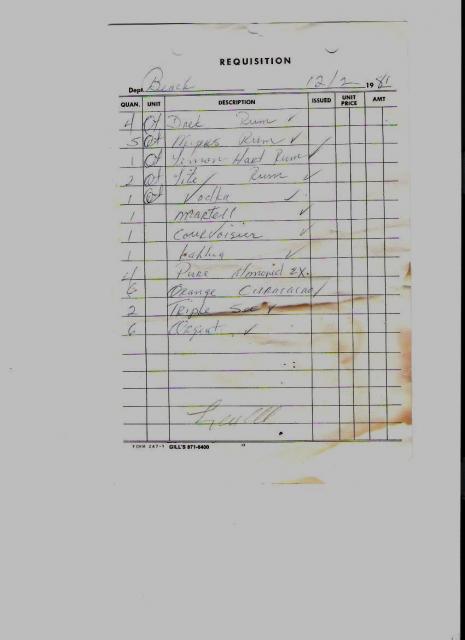 REQUISITION
Dept. Beach 12/2 1981
QUAN. UNIT DESCRIPTION ISSUED UNIT PRICE AMT
4 Qt Dark Rum ✓
5 Qt Rum ✓
1 Qt Lemon Hart Rum ✓
2 Qt Lite Rum ✓
1 Qt Vodka ✓
1 Martell ✓
1 Courvoisier ✓
1 Kahlua ✓
4 Pure Almond Ex.
6 Orange Curacao ✓
2 Triple Sec ✓
6 Orgeat ✓
FORM 247-1 GILL'S 871-6400